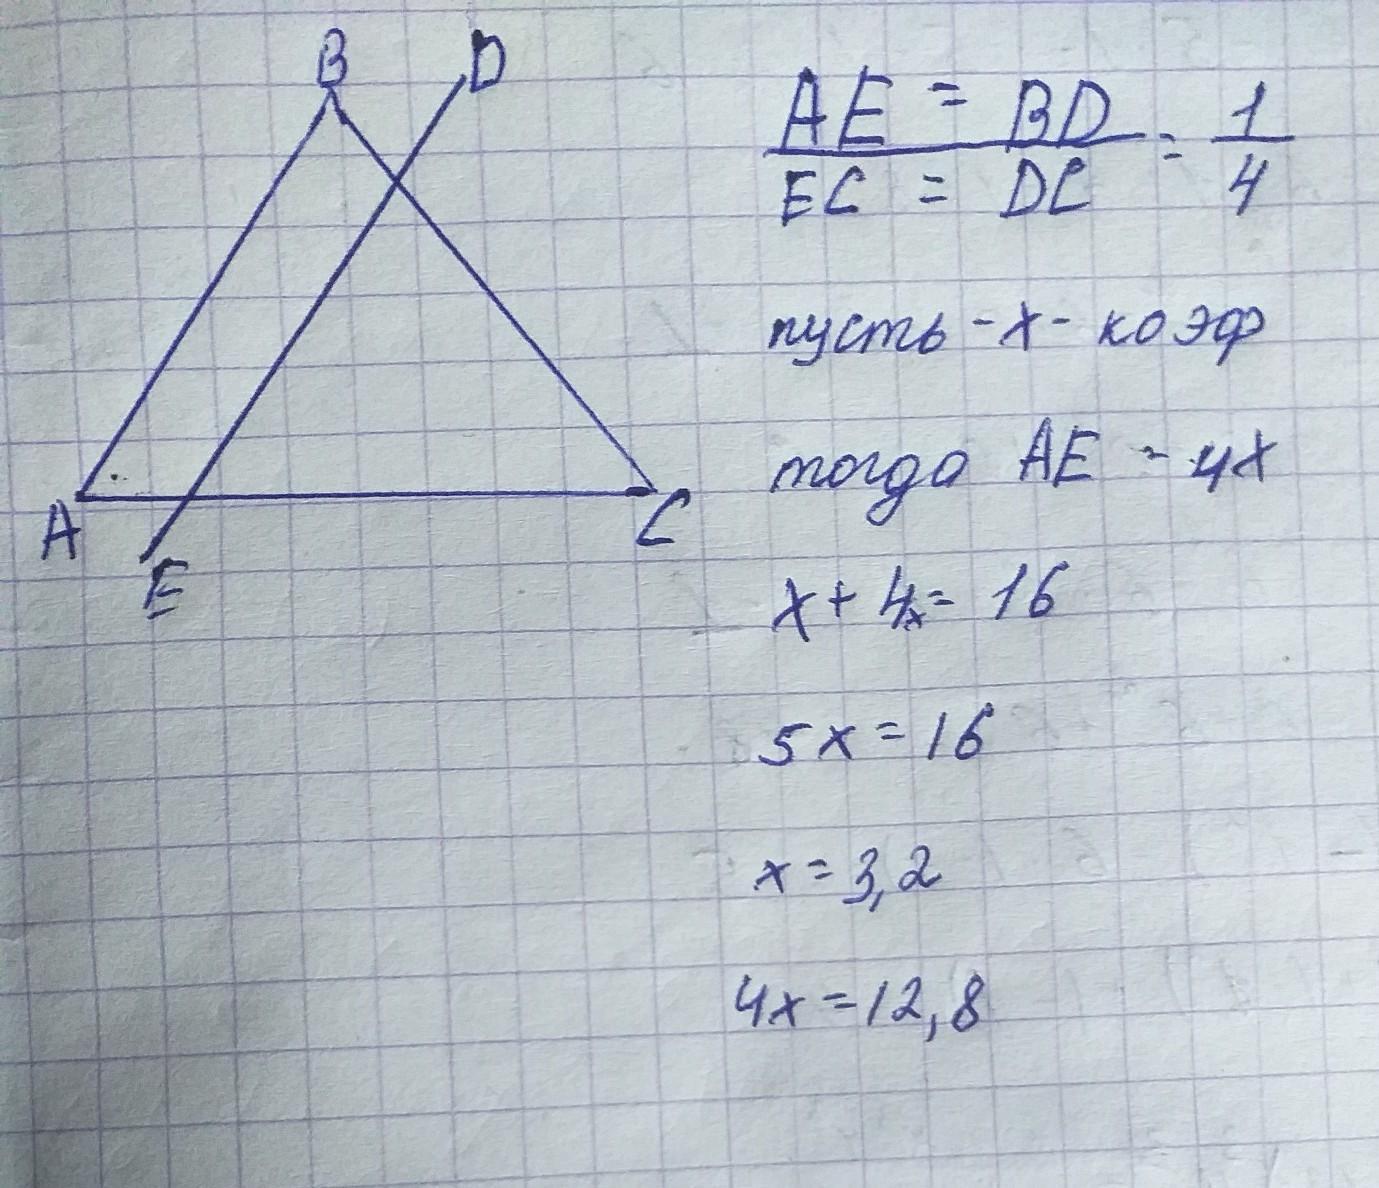 B D
A E C
AE = BD = 1
EC = DC 4
пусть - x - коэф
тогда AE - 4x
x + 4x = 16
5x = 16
x = 3,2
4x = 12,8